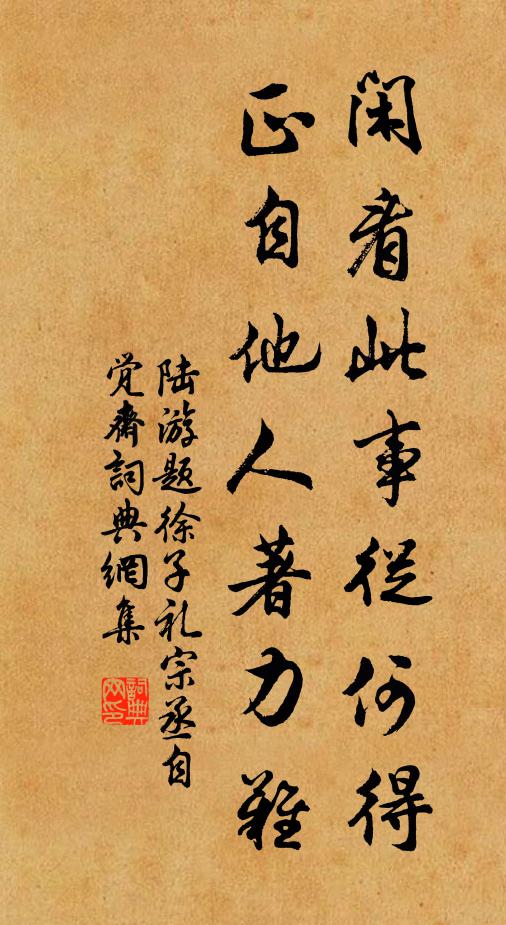 闲看此事從何得
正自他人著力難
陆游题徐子礼宗丞自
觉斋詞典網集
詞典网印